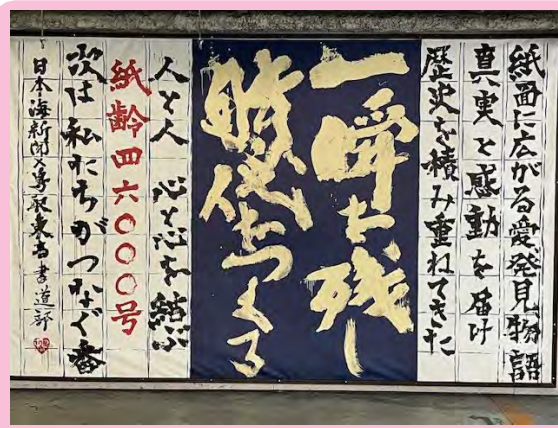 紙面に広がる愛発見物語
真実と感動を届け
歴史を積み重ねてきた
一瞬を残し
時代をつくる
人と人 心と心を結ぶ
紙齢四六〇〇〇号
次は私たちがつなぐ番
日本海新聞×鳥取東高書道部